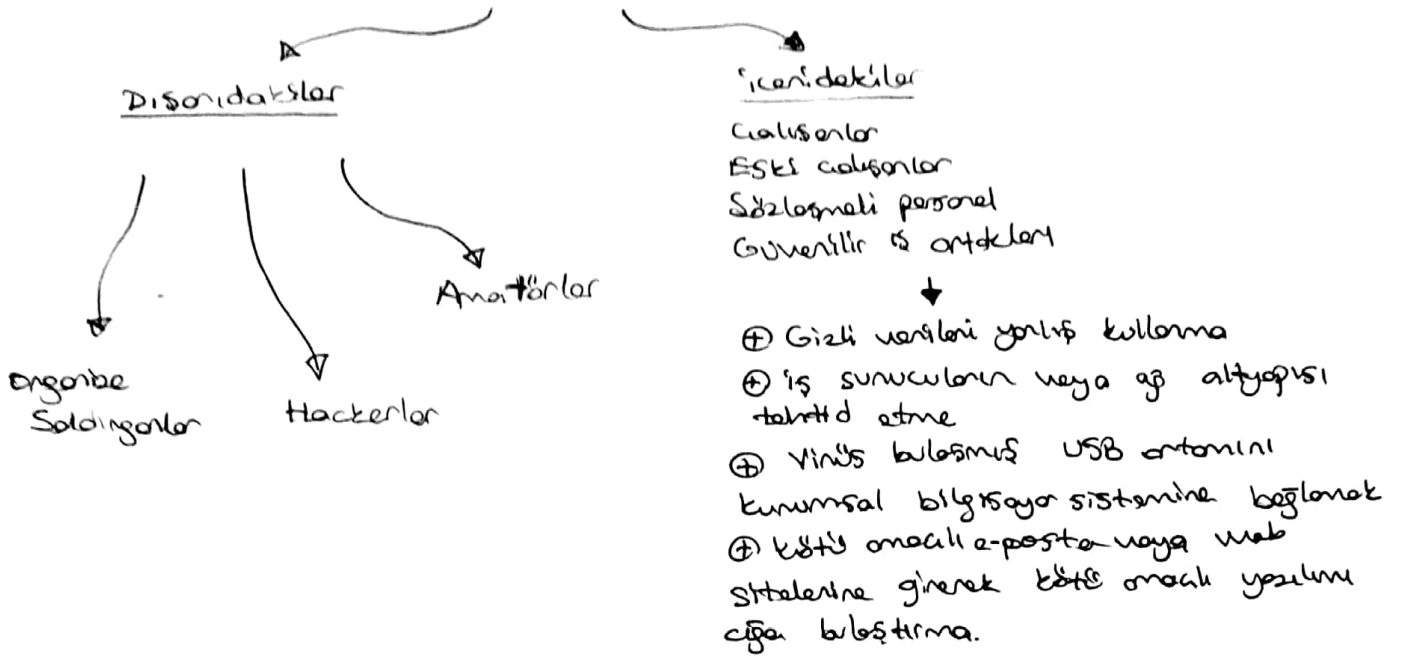 Dışarıdakiler
Amatörler
Organize
Saldırganlar
Hackerlar
içeridekiler
Çalışanlar
Eski çalışanlar
Sözleşmeli personel
Güvenilir iş ortakları
⊕ Gizli verileri yanlış kullanma
⊕ iş sunucuların veya ağ altyapısı
tehdid etme
⊕ Virüs bulaşmış USB ortamını
kurumsal bilgisayar sistemine bağlamak
⊕ kötü amaçlı e-posta veya web
sitelerine girerek kötü amaçlı yazılımı
ağa bulaştırma.